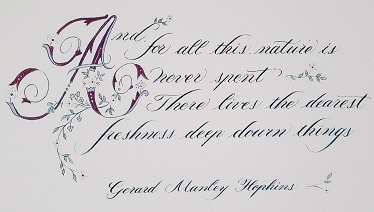 And for all this nature is
never spent
There lives the dearest
freshness deep down things
Gerard Manley Hopkins